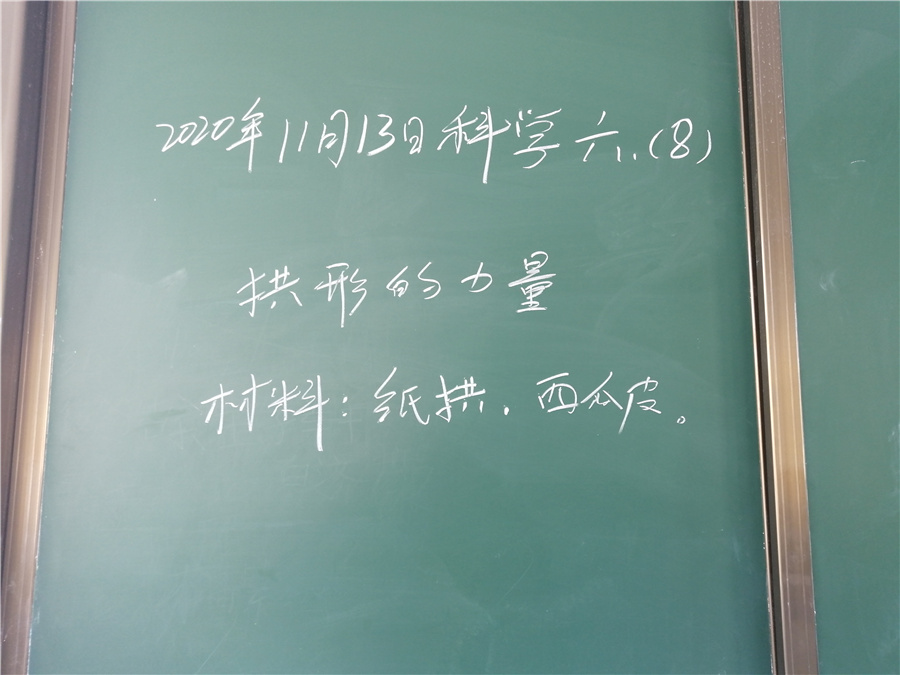 2020年11月13日科学六.(8)
拱形的力量
材料:纸拱.西瓜皮。